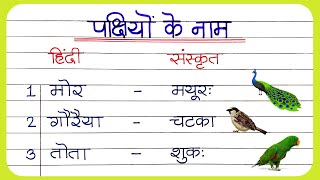 पक्षियों के नाम
हिंदी संस्कृत
1 मोर - मयूरः
2 गौरैया - चटका
3 तोता - शुकः